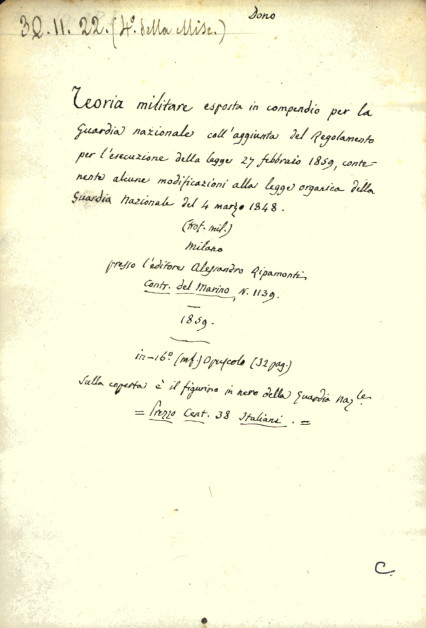 Dono
3Q. 11. 22. (4º. della Misc.)
Teoria militare esposta in compendio per la
Guardia nazionale coll'aggiunta del Regolamento
per l'esecuzione della legge 27 febbraio 1859, conte-
nente alcune modificazioni alla legge organica della
Guardia Nazionale del 4 marzo 1848.
mil.)
Milano
presso l'editore Alessandro Ripamonti
Contr. del Marino, N. 1139.
1859.
in-16º (mf.) Opuscolo (32 pag.)
Sulla coperta è il figurino in nero della Guardia Naz.le
= Prezzo Cent. 38 Italiani. =
C.